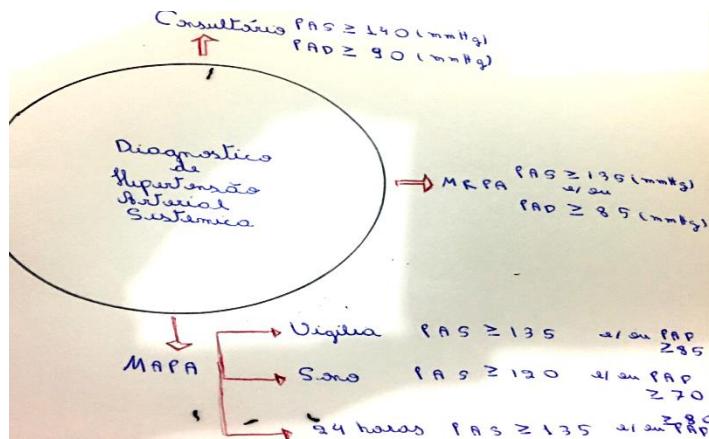 Consultório PAS ≥ 140 (mmHg)
PAD ≥ 90 (mmHg)
Diagnostico
de
Hipertensão
Arterial
Sistêmica
MRPA PAS ≥ 135 (mmHg)
e/ou
PAD ≥ 85 (mmHg)
MAPA
Vigília PAS ≥ 135 e/ou PAD
≥85
Sono PAS ≥ 120 e/ou PAD
≥70
24 horas PAS ≥ 135 e/ou PAD
≥80